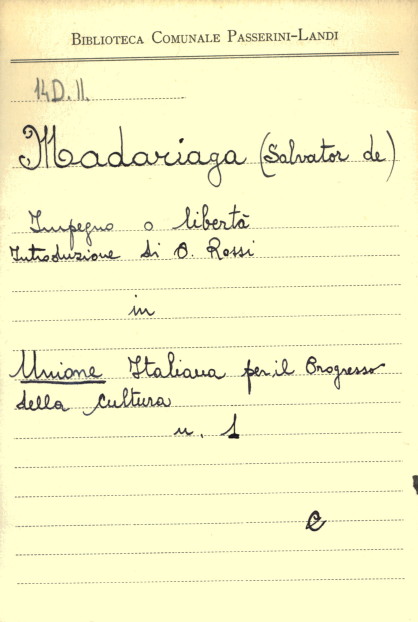 BIBLIOTECA COMUNALE PASSERINI-LANDI
14D.II.
Madariaga (Salvator de)
Impegno o libertà
Introduzione di O. Rossi
in
Unione Italiana per il Progresso
della cultura
n. 1
C